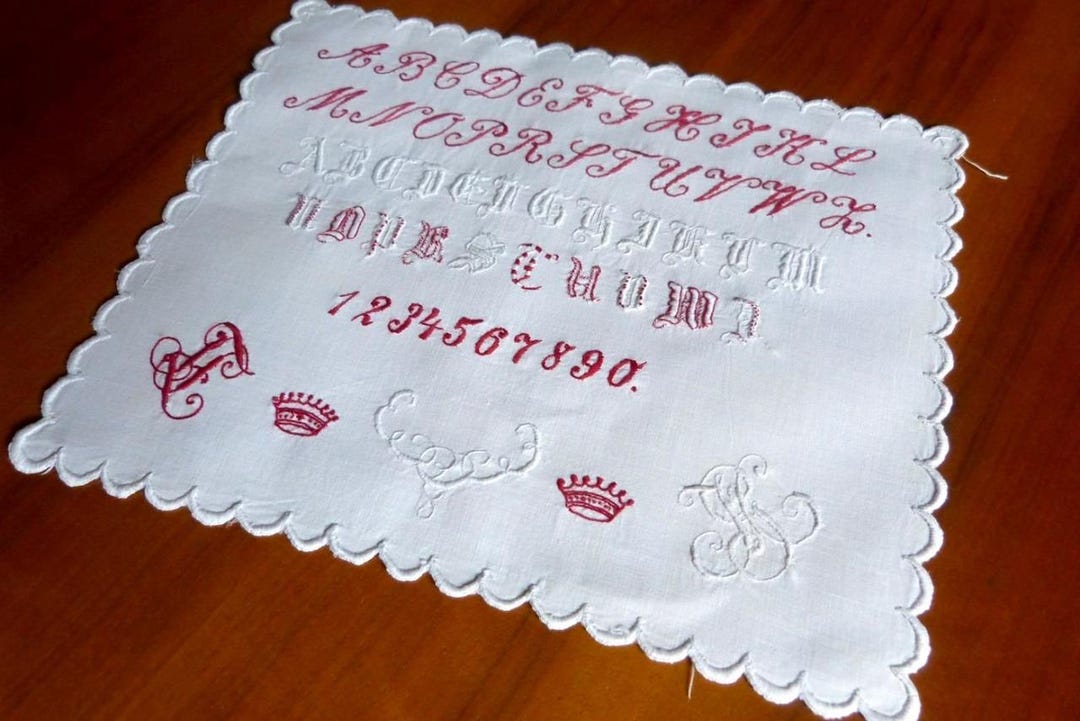 A B C D E F G H I K L
M N O P R S T U V W Z.
A B C D E F G H I K L M
N O P R S T U V W Z
1 2 3 4 5 6 7 8 9 0.